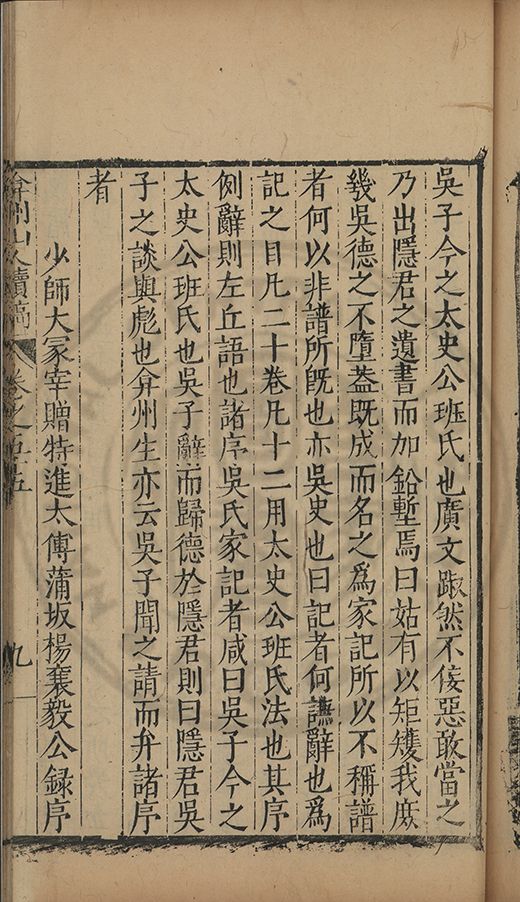 吳子今之太史公班氏也廣文踧然不佞惡敢當之
乃出隱君之遺書而加鉛塹焉曰姑有以矩矱我庶
幾吳德之不墮葢既成而名之爲家記所以不稱譜
者何以非譜所旣也亦吳史也曰記者何讌辭也爲
記之目凡二十卷凡十二用太史公班氏法也其序
例辭則左丘語也諸序吳氏家記者咸曰吳子今之
太史公班氏也吳子辭而歸德於隱君則曰隱君吳
子之談與彪也弇州生亦云吳子聞之請而弁諸序
者
少師大冢宰贈特進太傅蒲坂楊襄毅公録序
弇州山人續稿 卷之五十五 九